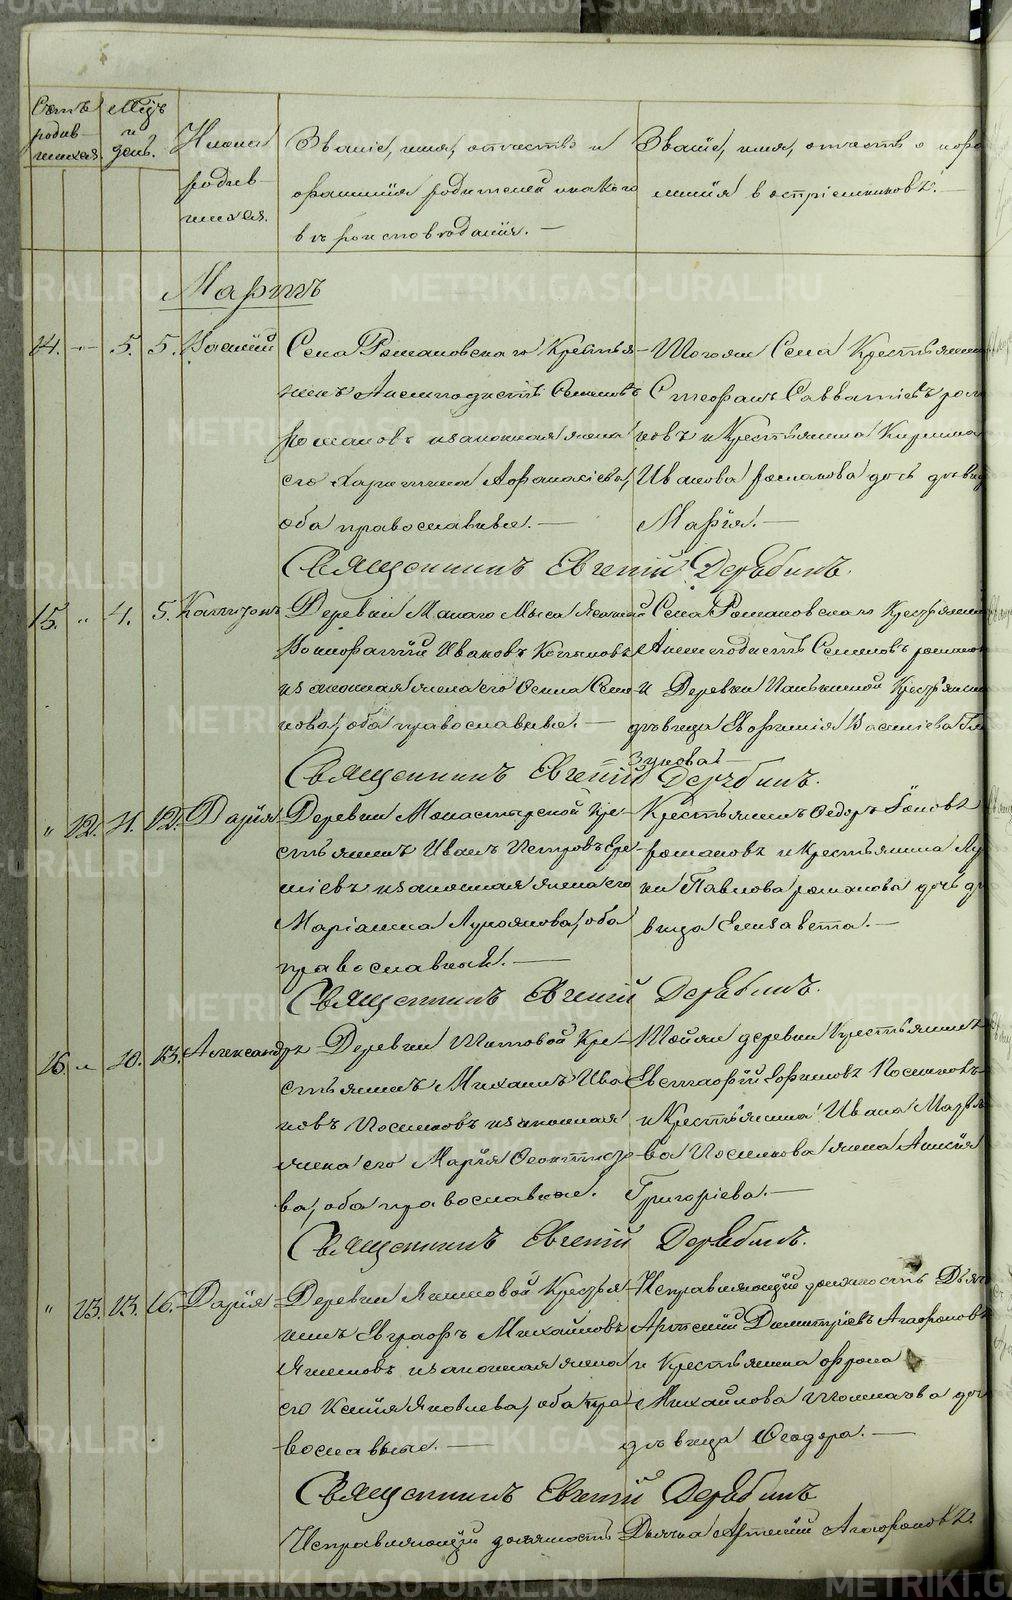 METRIKI.GASO-URAL.RU
Счетъ родив-шихся.
Мѣсяцъ и день.
Имена родив-шихся.
Званіе, имя, отчество и фамилія родителей и какого вѣроисповѣданія. —
Званіе, имя, отчество и фамилія воспріемниковъ. —
Мартъ
14. — 5. 5. Василій
Села Романовскаго Крестья-
нинъ Анемподистъ Семеновъ
Романовъ и законная жена
его Харитина Афанасіева,
оба православные. —
Тогоже Села Крестьянинъ
Стефанъ Савватіевъ Рома
новъ и Крестьянина Кирила
Иванова Романова дочь дѣвица
Марія. —
Священникъ Евгеній Дерябинъ.
15. " 4. 5.
Деревни Малаго Мыса
Иванов
и законная жена его Семе-
нова, оба православные. —
Села Романовскаго Крестьянинъ
Анемподистъ Семеновъ Романовъ
и Деревни Крестьянина
дѣвица Евфимія Василіева
Священникъ Евгеній Дерябинъ.
" 12. 11. 12. Дарія
Деревни Монастырской Кре-
стьянинъ Иванъ Петровъ Ере-
мѣевъ и законная жена его
Маріанна Лукоянова, оба
православные. —
Крестьянинъ Федоръ
Романовъ и Крестьянина Лу
ки Павлова Романова дочь дѣ
вица Елизавета. —
Священникъ Евгеній Дерябинъ.
16. " 10. 13. Александръ
Деревни Титовой Кре-
стьянинъ Михаилъ Ива
новъ Посниковъ и законная
жена его Марія
ва, оба православные.
Тойже деревни Крестьянинъ
Евстафій Ефимовъ Посниковъ
и Крестьянина Ивана
ва Посникова жена Анисія
Григоріева. —
Священникъ Евгеній Дерябинъ.
" 13. 13. 16. Дарія
Деревни Якимовой Крестья
нинъ Евграфъ Михайловъ
Якимовъ и законная жена
его Ксенія Яковлева, оба пра-
вославные. —
Исправляющій должность Дьячка
Арсеній Димитріевъ Агафоновъ
и Крестьянина Фрола
Михайлова дочь
дѣвица Феодора. —
Священникъ Евгеній Дерябинъ
Исправляющій должность Дьячка Арсеній Агафоновъ.